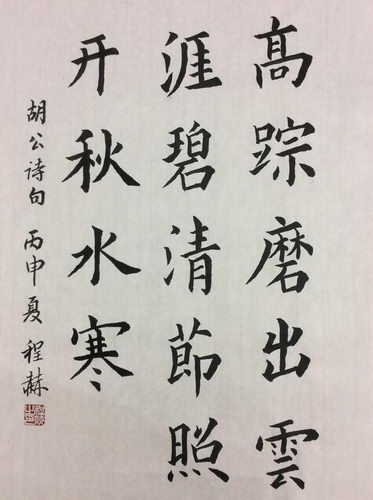 高踪磨出雲
涯碧清節照
开秋水寒
胡公诗句 丙申夏 程赫